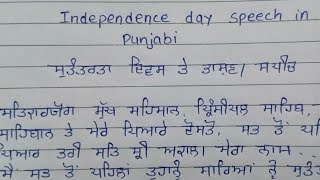 Independence day speech in
Punjabi
ਸੁਤੰਤਰਤਾ ਦਿਵਸ ਤੇ ਭਾਸ਼ਣ। ਸਪੀਚ
ਸਤਿਕਾਰਯੋਗ ਮੁੱਖ ਮਹਿਮਾਨ, ਪ੍ਰਿੰਸੀਪਲ ਸਾਹਿਬ,
ਸਾਹਿਬਾਨ ਤੇ ਮੇਰੇ ਪਿਆਰੇ ਦੋਸਤੋ, ਸਭ ਤੋਂ ਪਹਿ
ਪਿਆਰ ਭਰੀ ਸਤਿ ਸ੍ਰੀ ਅਕਾਲ। ਮੇਰਾ ਨਾਮ
ਮੈਂ ਸਭ ਤੋਂ ਪਹਿਲਾਂ ਤੁਹਾਨੂੰ ਸਾਰਿਆਂ ਨੂੰ ਸੁਤੰ